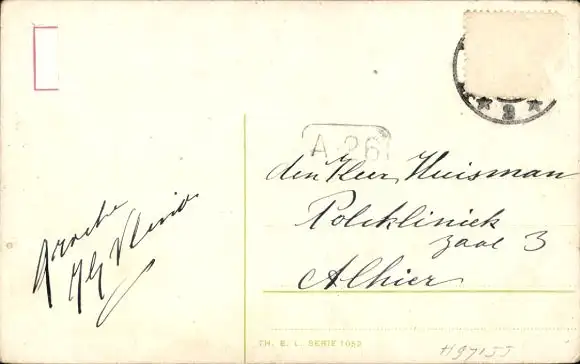 A 26
den Heer Huisman
Polikliniek
zaal 3
Alhier
Groete
TH. E. L. SERIE 1052
H97155